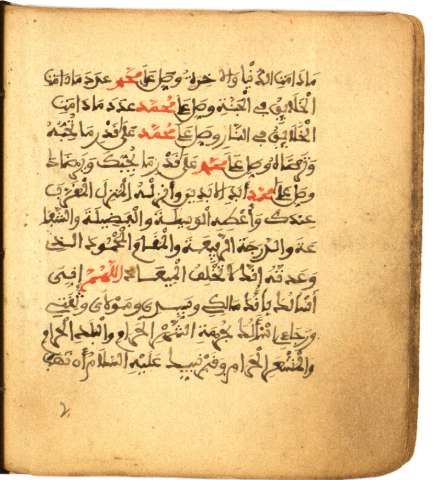 ما دامت الدنيا والاخرة وصل على محمد عدد ما دامت
الخلايق في الجنة وصل على محمد عدد ما دامت
الخلايق في النار وصل على محمد على قدر ما تحبه
وترضاه وصل على محمد على قدر ما يحبك ويرضاك
وصل على محمد ابد الابدين وانزله المنزل المقرب
عندك واعطه الوسيلة والفضيلة والشفا
عة والدرجة الرفيعة والمقام المحمود الذي
وعدته انك لا تخلف الميعاد اللهم اني
اسألك بأنك مالكي وسيدي ومولاي وثقتي
ورجاءي اسألك بحرمة الشهر الحرام والبلد الحرام
والمشعر الحرام وقبر نبيك عليه السلام ان تهب
لي